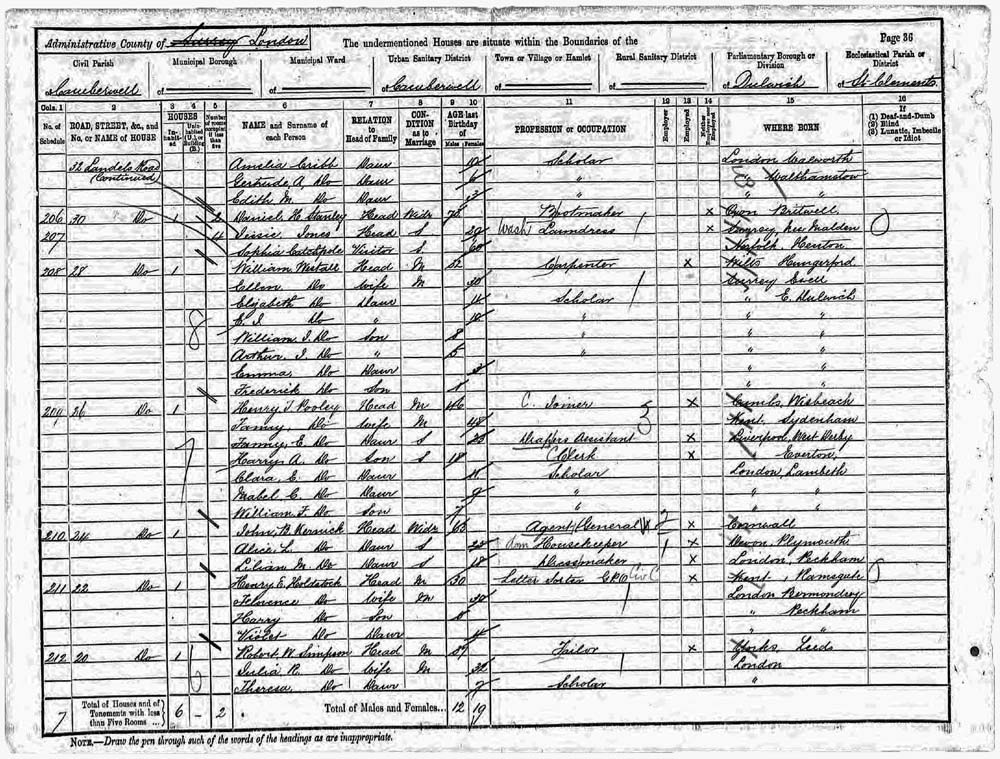 Administrative County of Surrey London The undermentioned Houses are situate within the Boundaries of the Page 36
Civil Parish Municipal Borough Municipal Ward Urban Sanitary District Town or Village or Hamlet Rural Sanitary District Parliamentary Borough or Division Ecclesiastical Parish or District
of Camberwell of of of Camberwell of of of Dulwich of St Clements
Cols. 1 2 3 4 5 6 7 8 9 10 11 12 13 14 15 16
No. of Schedule ROAD, STREET, &c., and No. or NAME of HOUSE HOUSES Inhabited Uninhabited (U.), or Building (B.) Number of rooms occupied if less than five NAME and Surname of each Person RELATION to Head of Family CONDITION as to Marriage AGE last Birthday of Males Females PROFESSION or OCCUPATION Employer Employed Neither Employer nor Employed WHERE BORN If (1) Deaf-and-Dumb (2) Blind (3) Lunatic, Imbecile or Idiot
32 Landels Road Amelia Daur Scholar London Walworth
(Continued) Gertrude, A. Do Daur " " Walthamstow
Edith M. Do Daur 3 " "
206 30 Do 1 2 Daniel H. Stanley Head Widr Bootmaker x Oxon Britwell
207 4 Jessie Jones Head S 29 Wash Laundress x Surrey, New Malden
Sophia Catchpole Visitor S 60 Norfolk
208 28 Do 1 William Westall Head M 32 Carpenter x Wilts Hungerford
Ellen Do Wife M 30 Surrey Ewell
Elizabeth Do Daur 11 Scholar " E. Dulwich
E. J. Do " 10 " " "
William J. Do Son 8 " " "
Arthur J. Do " 5 " " "
Emma Do Daur 3 " "
Frederick Do Son 1 " "
209 26 Do 1 Henry J. Pooley Head M 46 C. Joiner x Cambs, Wisbeach
Fanny, Do Wife M 48 Kent Sydenham
Fanny, E. Do Daur S 23 Drapers Assistant x Liverpool, West Derby
Harry A. Do Son S 18 Clerk x " Everton,
Clara, E. Do Daur 11 Scholar London, Lambeth
Mabel E. Do Daur 9 " " "
William F. Do Son 7 " "
210 24 Do 1 John, B. Head Widr 63 Agent General x Cornwall
Alice, L. Do Daur S 22 dom Housekeeper x Devon, Plymouth
Lilian M. Do Daur S 18 Dressmaker x London, Peckham
211 22 Do 1 Henry E. Holdstock Head M 30 Letter Sorter GPO Civ C x Kent, Ramsgate
Florence Do Wife M 30 London Bermondsey
Harry Do Son " Peckham
Violet Do Daur " "
212 20 Do 1 Robert, W. Simpson Head M 37 Tailor x Yorks, Leeds
Julia R. Do Wife M London
Theresa, Do Daur 7 Scholar "
7 Total of Houses and of Tenements with less than Five Rooms ... 6 – 2 Total of Males and Females... 12 19
NOTE.—Draw the pen through such of the words of the headings as are inappropriate.